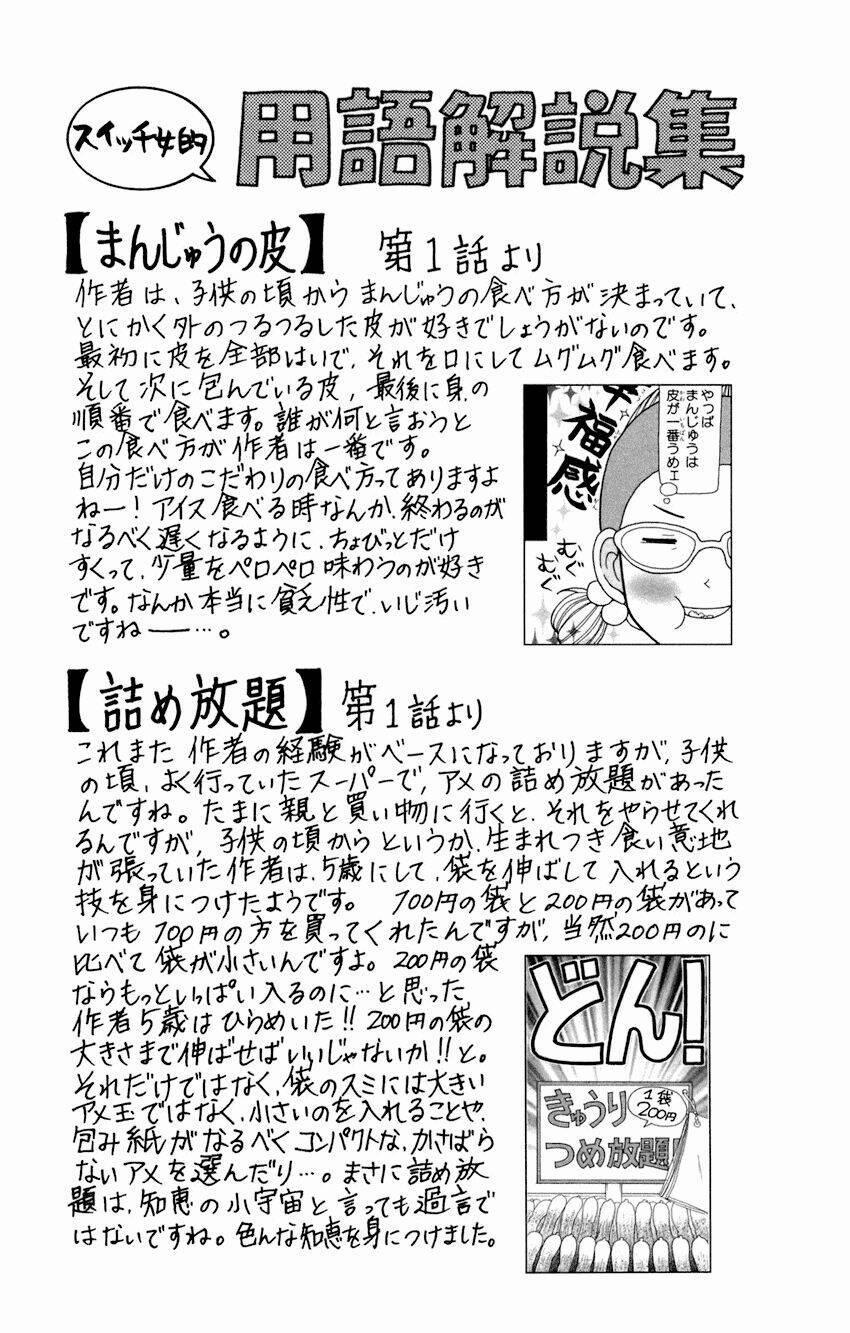 スイッチ女的
用語解説集
【まんじゅうの皮】 第1話より
作者は、子供の頃からまんじゅうの食べ方が決まっていて、
とにかく外のつるつるした皮が好きでしょうがないのです。
最初に皮を全部はいで、それを口にしてムグムグ食べます。
そして次に包んでいる皮、最後に身の
順番で食べます。誰が何と言おうと
この食べ方が作者は一番です。
自分だけのこだわりの食べ方ってありますよ
ねー!アイス食べる時なんか、終わるのが
なるべく遅くなるように、ちょびっとだけ
すくって、少量をペロペロ味わうのが好き
です。なんか本当に貧乏性で、いじ汚い
ですねー…。
やっぱ
まんじゅうは
皮が一番うめェ
幸福感
むぐ
むぐ
【詰め放題】 第1話より
これまた作者の経験がベースになっておりますが、子供
の頃、よく行っていたスーパーで、アメの詰め放題があった
んですね。たまに親と買い物に行くと、それをやらせてくれ
るんですが、子供の頃からというか、生まれつき食い意地
が張っていた作者は、5歳にして、袋を伸ばして入れるという
技を身につけたようです。 100円の袋と200円の袋があって
いつも100円の方を買ってくれたんですが、当然200円のに
比べて袋が小さいんですよ。200円の袋
ならもっといっぱい入るのに…と思った
作者5歳はひらめいた!!200円の袋の
大きさまで伸ばせばいいじゃないか!!と。
それだけではなく、袋のスミには大きい
アメ玉ではなく、小さいのを入れることや、
包み紙がなるべくコンパクトな、かさばら
ないアメを選んだり…。まさに詰め放
題は、知恵の小宇宙と言っても過言で
はないですね。色んな知恵を身につけました。
どん!
きゅうり
1袋
200円
つめ放題!